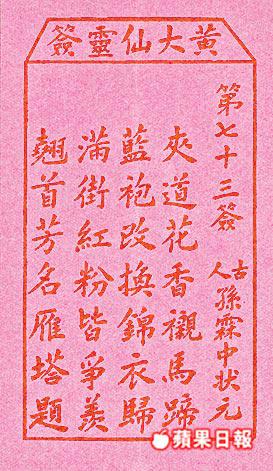 黃大仙靈簽
第七十三簽 古人 孫霖中狀元
夾道花香襯馬蹄
藍袍改換錦衣歸
滿街紅粉皆爭羨
翹首芳名雁塔題
蘋果日報